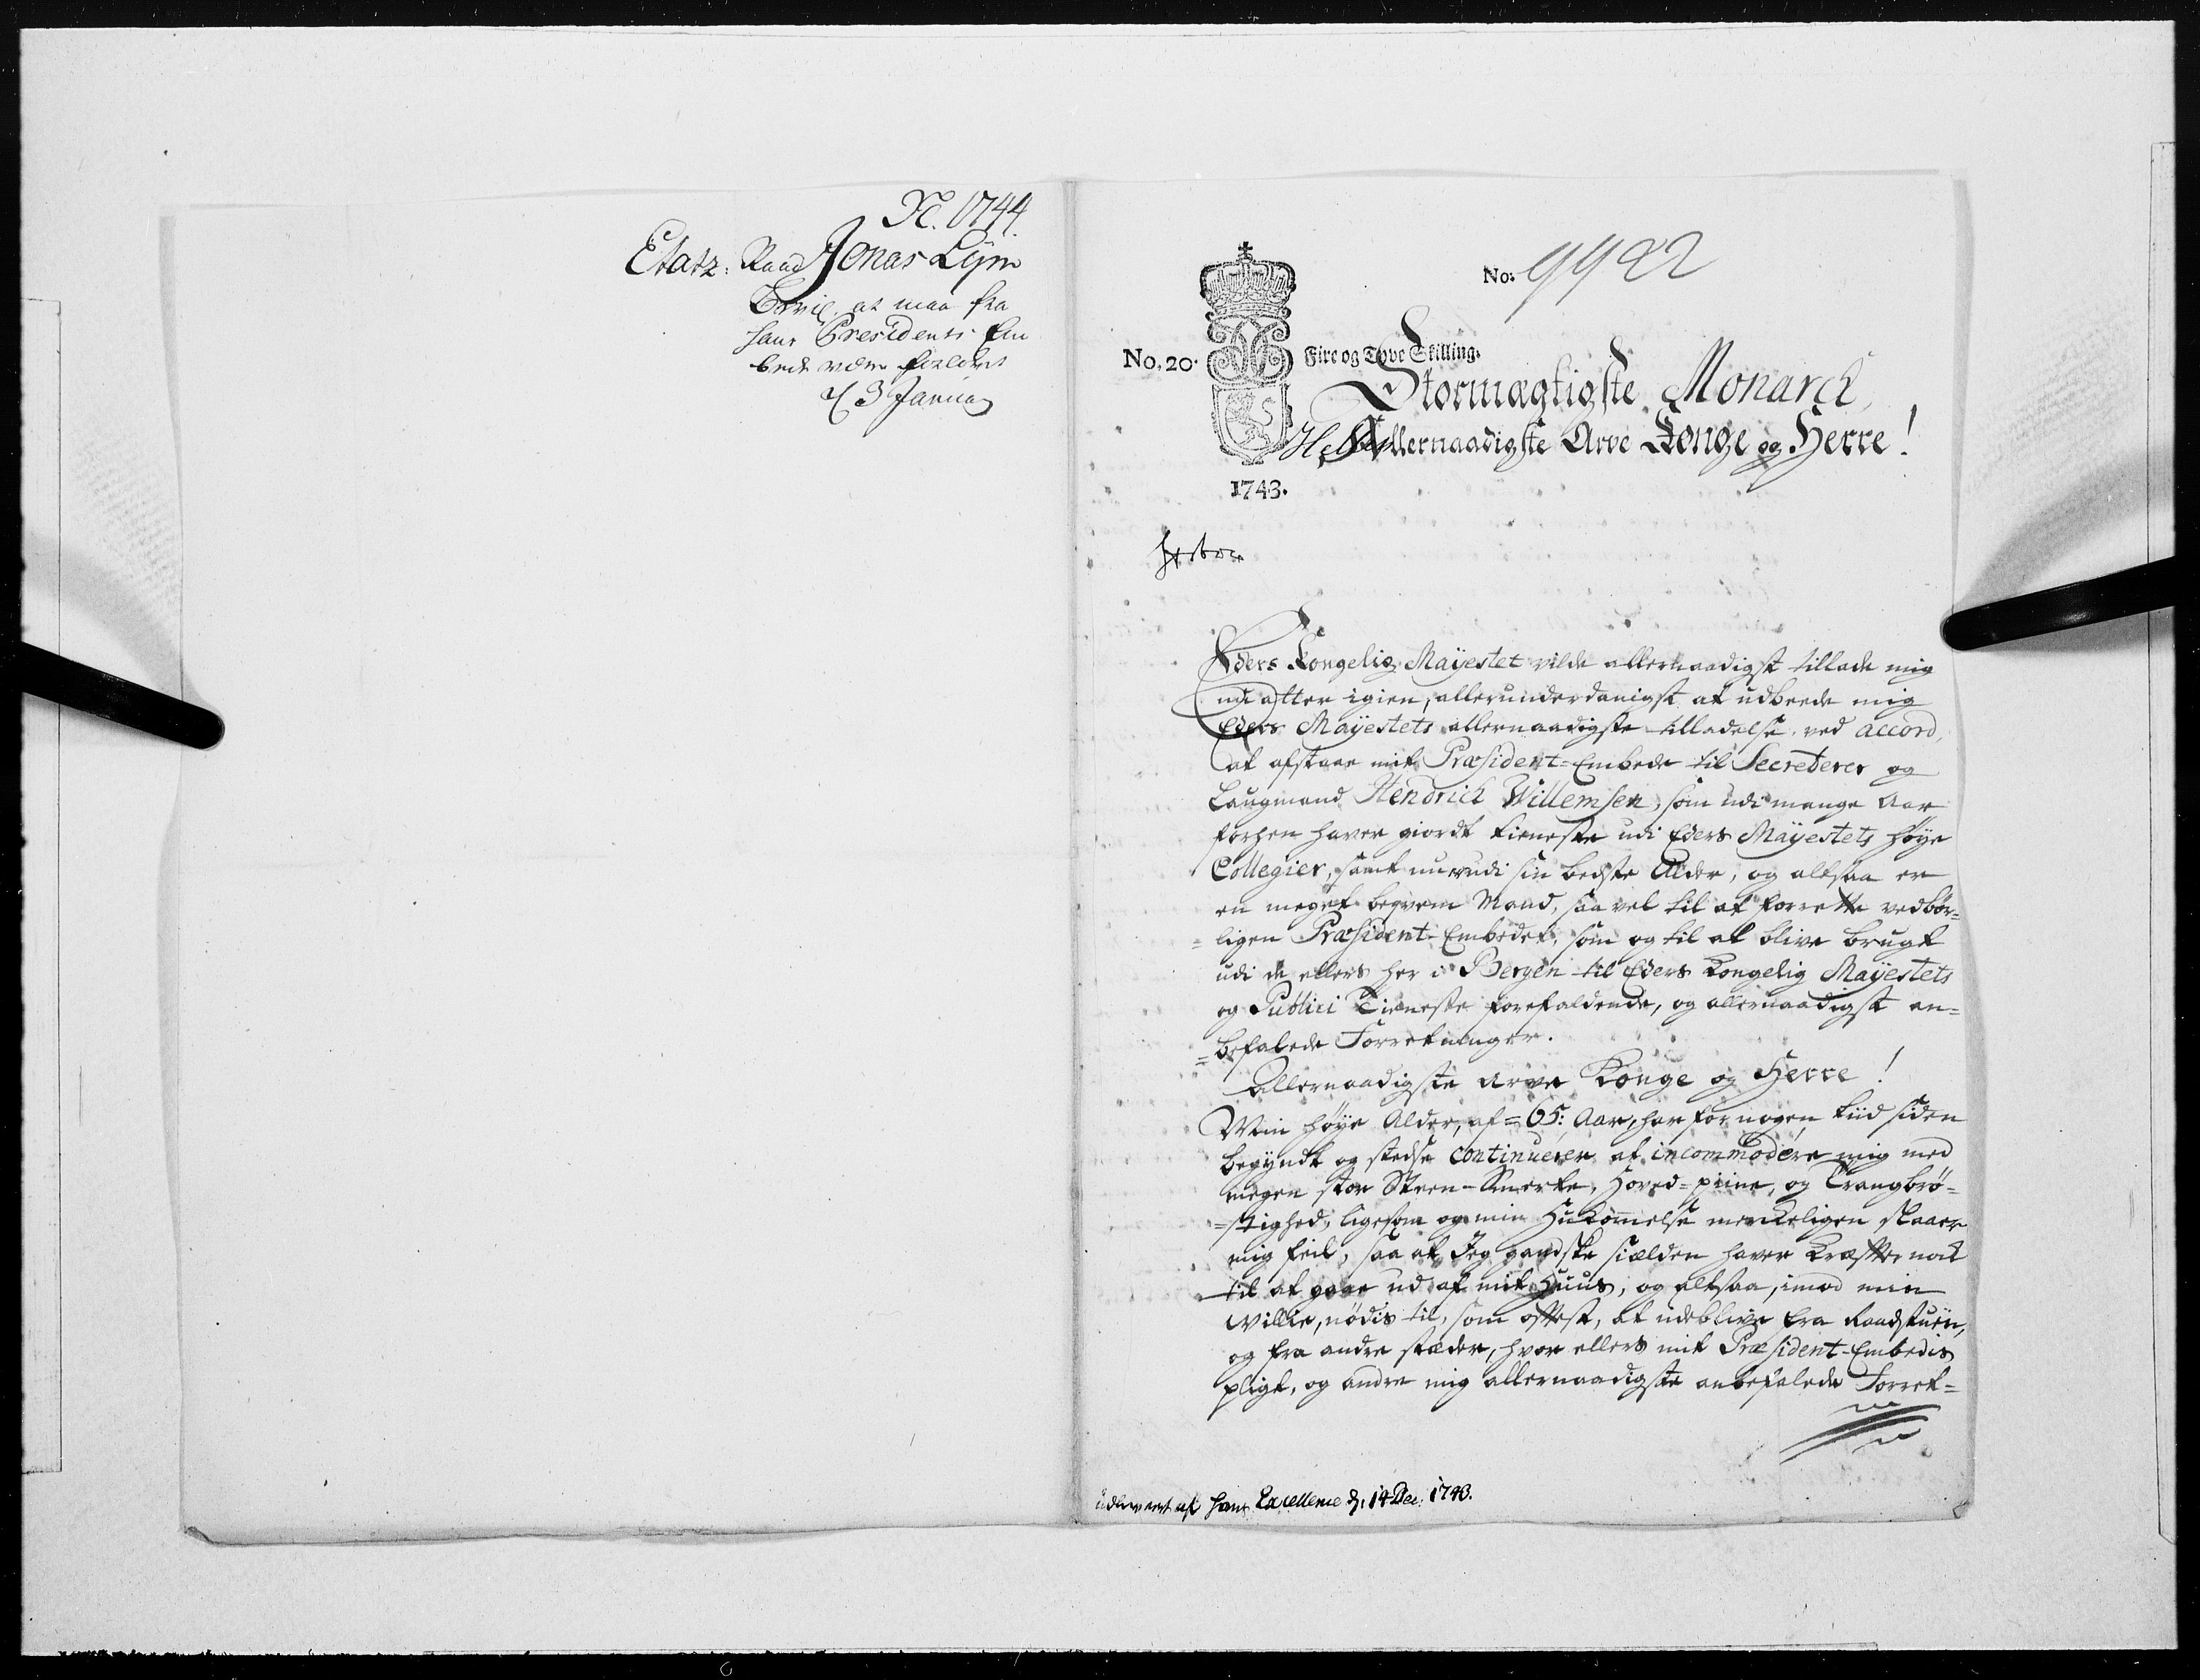 No. 1744.
Etatz: Raad Jonas Lÿm
Bevil. at maa fra
hans Presidents Em
bede være forlovet
d 3 Janua
No: 9922
No. 20.
Fire og Tyve Skilling.
Stormægtigste Monarch,
Allernaadigste Arve Konge og Herre!
1743.
Eders Kongelig Maÿestet vilde allernaadigst tillade mig
nu atter igien, allerunderdanigst at udbeede mig
Eders Maÿestets allernaadigste tilladelse, ved accord,
at afstaae mit Præsident-Embede til Secreterer og
Laugmand Hendrich Willemsen, som udi mange Aar
forhen haver giordt tieneste udi Eders Maÿestets høÿe
Collegier, samt nu er udi sin bedste Alder, og altsaa er
en meget beqvem Mand, saa vel til at forrette vedbør=
=ligen Præsident-Embedet, som og til at blive brugt
udi de ellers her i Bergen til Eders Kongelig Maÿestets
og Publici Tieneste forefaldende, og allernaadigst an=
=befalede Forretninger.
Allernaadigste Arve Konge og Herre!
Min høÿe Alder, af=65: Aar, har for nogen tiid siden
begÿndt og stedse continuerer at incommodere mig med
megen stor Steen-Smerte, Hoved=piine, og Trangbrø=
=stighed, ligesom og min Hukommelse merckeligen slaaer
mig feil, saa at Jeg gandske siælden haver Kræffter nock
til at gaae ud af mit Huus, og altsaa, imod min
Willie, nødis til, som offtest, at udeblive fra Raadstuen,
og fra andre stæder, hvor ellers mit Præsident-Embedis
pligt, og andre mig allernaadigste anbefalede Forret=
udleveret af hans Excellence d. 14 Dec: 1743.